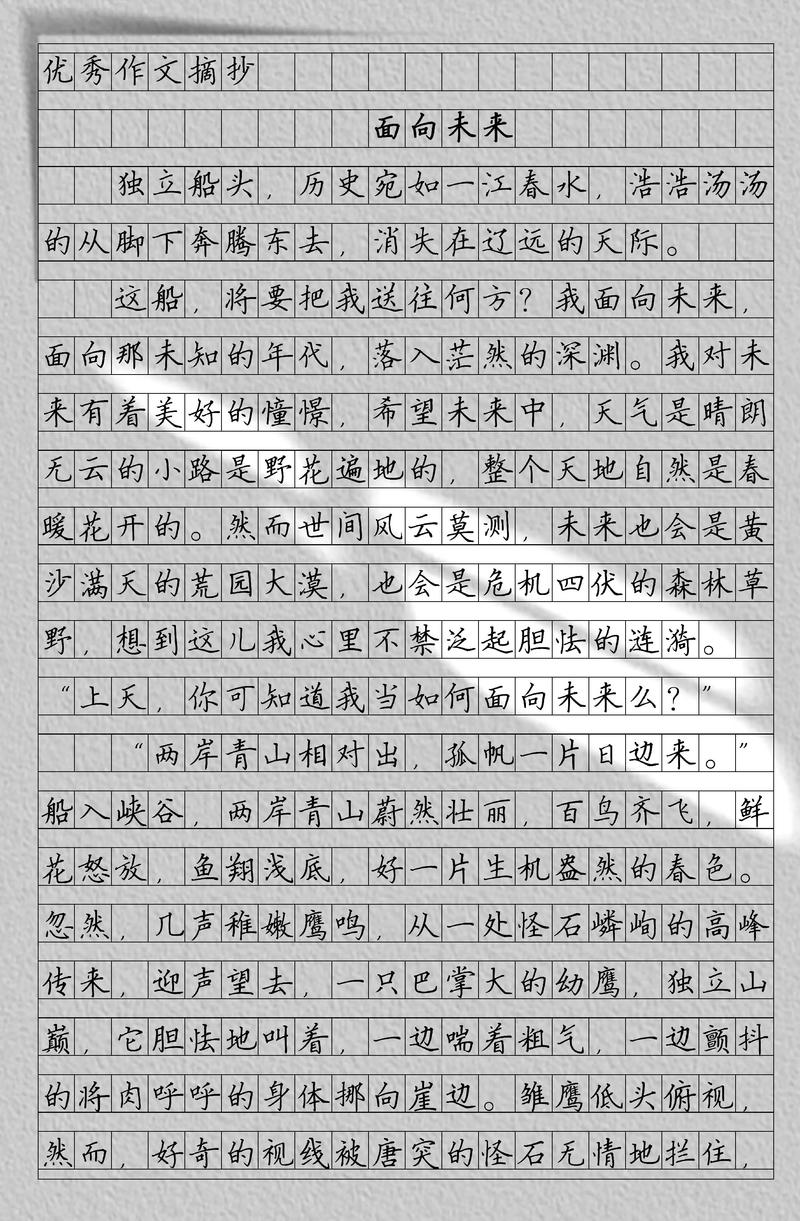 优秀作文摘抄
面向未来
独立船头，历史宛如一江春水，浩浩汤汤
的从脚下奔腾东去，消失在辽远的天际。
这船，将要把我送往何方？我面向未来，
面向那未知的年代，落入茫然的深渊。我对未
来有着美好的憧憬，希望未来中，天气是晴朗
无云的小路是野花遍地的，整个天地自然是春
暖花开的。然而世间风云莫测，未来也会是黄
沙满天的荒园大漠，也会是危机四伏的森林草
野，想到这儿我心里不禁泛起胆怯的涟漪。
“上天，你可知道我当如何面向未来么？”
“两岸青山相对出，孤帆一片日边来。”
船入峡谷，两岸青山蔚然壮丽，百鸟齐飞，鲜
花怒放，鱼翔浅底，好一片生机盎然的春色。
忽然，几声稚嫩鹰鸣，从一处怪石嶙峋的高峰
传来，迎声望去，一只巴掌大的幼鹰，独立山
巅，它胆怯地叫着，一边喘着粗气，一边颤抖
的将肉呼呼的身体挪向崖边。雏鹰低头俯视，
然而，好奇的视线被唐突的怪石无情地拦住，